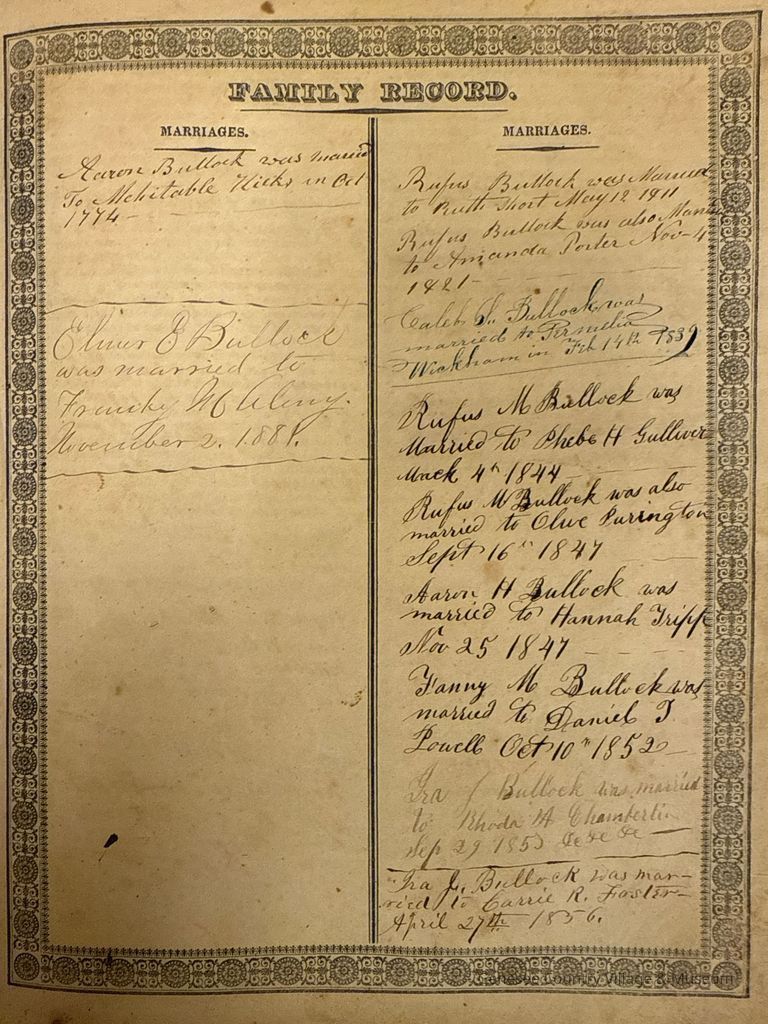 FAMILY RECORD.
MARRIAGES.
Aaron Bullock was married
To Mehitable Hicks in Oct
1774
Elmer E Bullock
was married to
Franky M Almy.
November 2. 1881.
MARRIAGES.
Rufus Bullock was Married
to Ruth Short May 12 1811
Rufus Bullock was also Marri
to Amanda Porter Nov 4
1821
Caleb S. Bullock was
married to Permelia
Wickham in Feb 14th 1839
Rufus M Bullock was
Married to Phebe H Gulliver
Mach 4th 1844
Rufus M Bullock was also
married to Olive Purington
Sept 16th 1847
Aaron H Bullock was
married to Hannah Tripp
Nov 25 1847
Fanny M Bullock was
married to Daniel T
Powell Oct 10th 1852
Ira J Bullock was married
to Rhoda A Chamberlin
Sep 29 1853 &c &c &c
Ira J. Bullock was mar-
ried to Carrie R. Foster
April 27th 1856.
Genesee Country Village & Museum